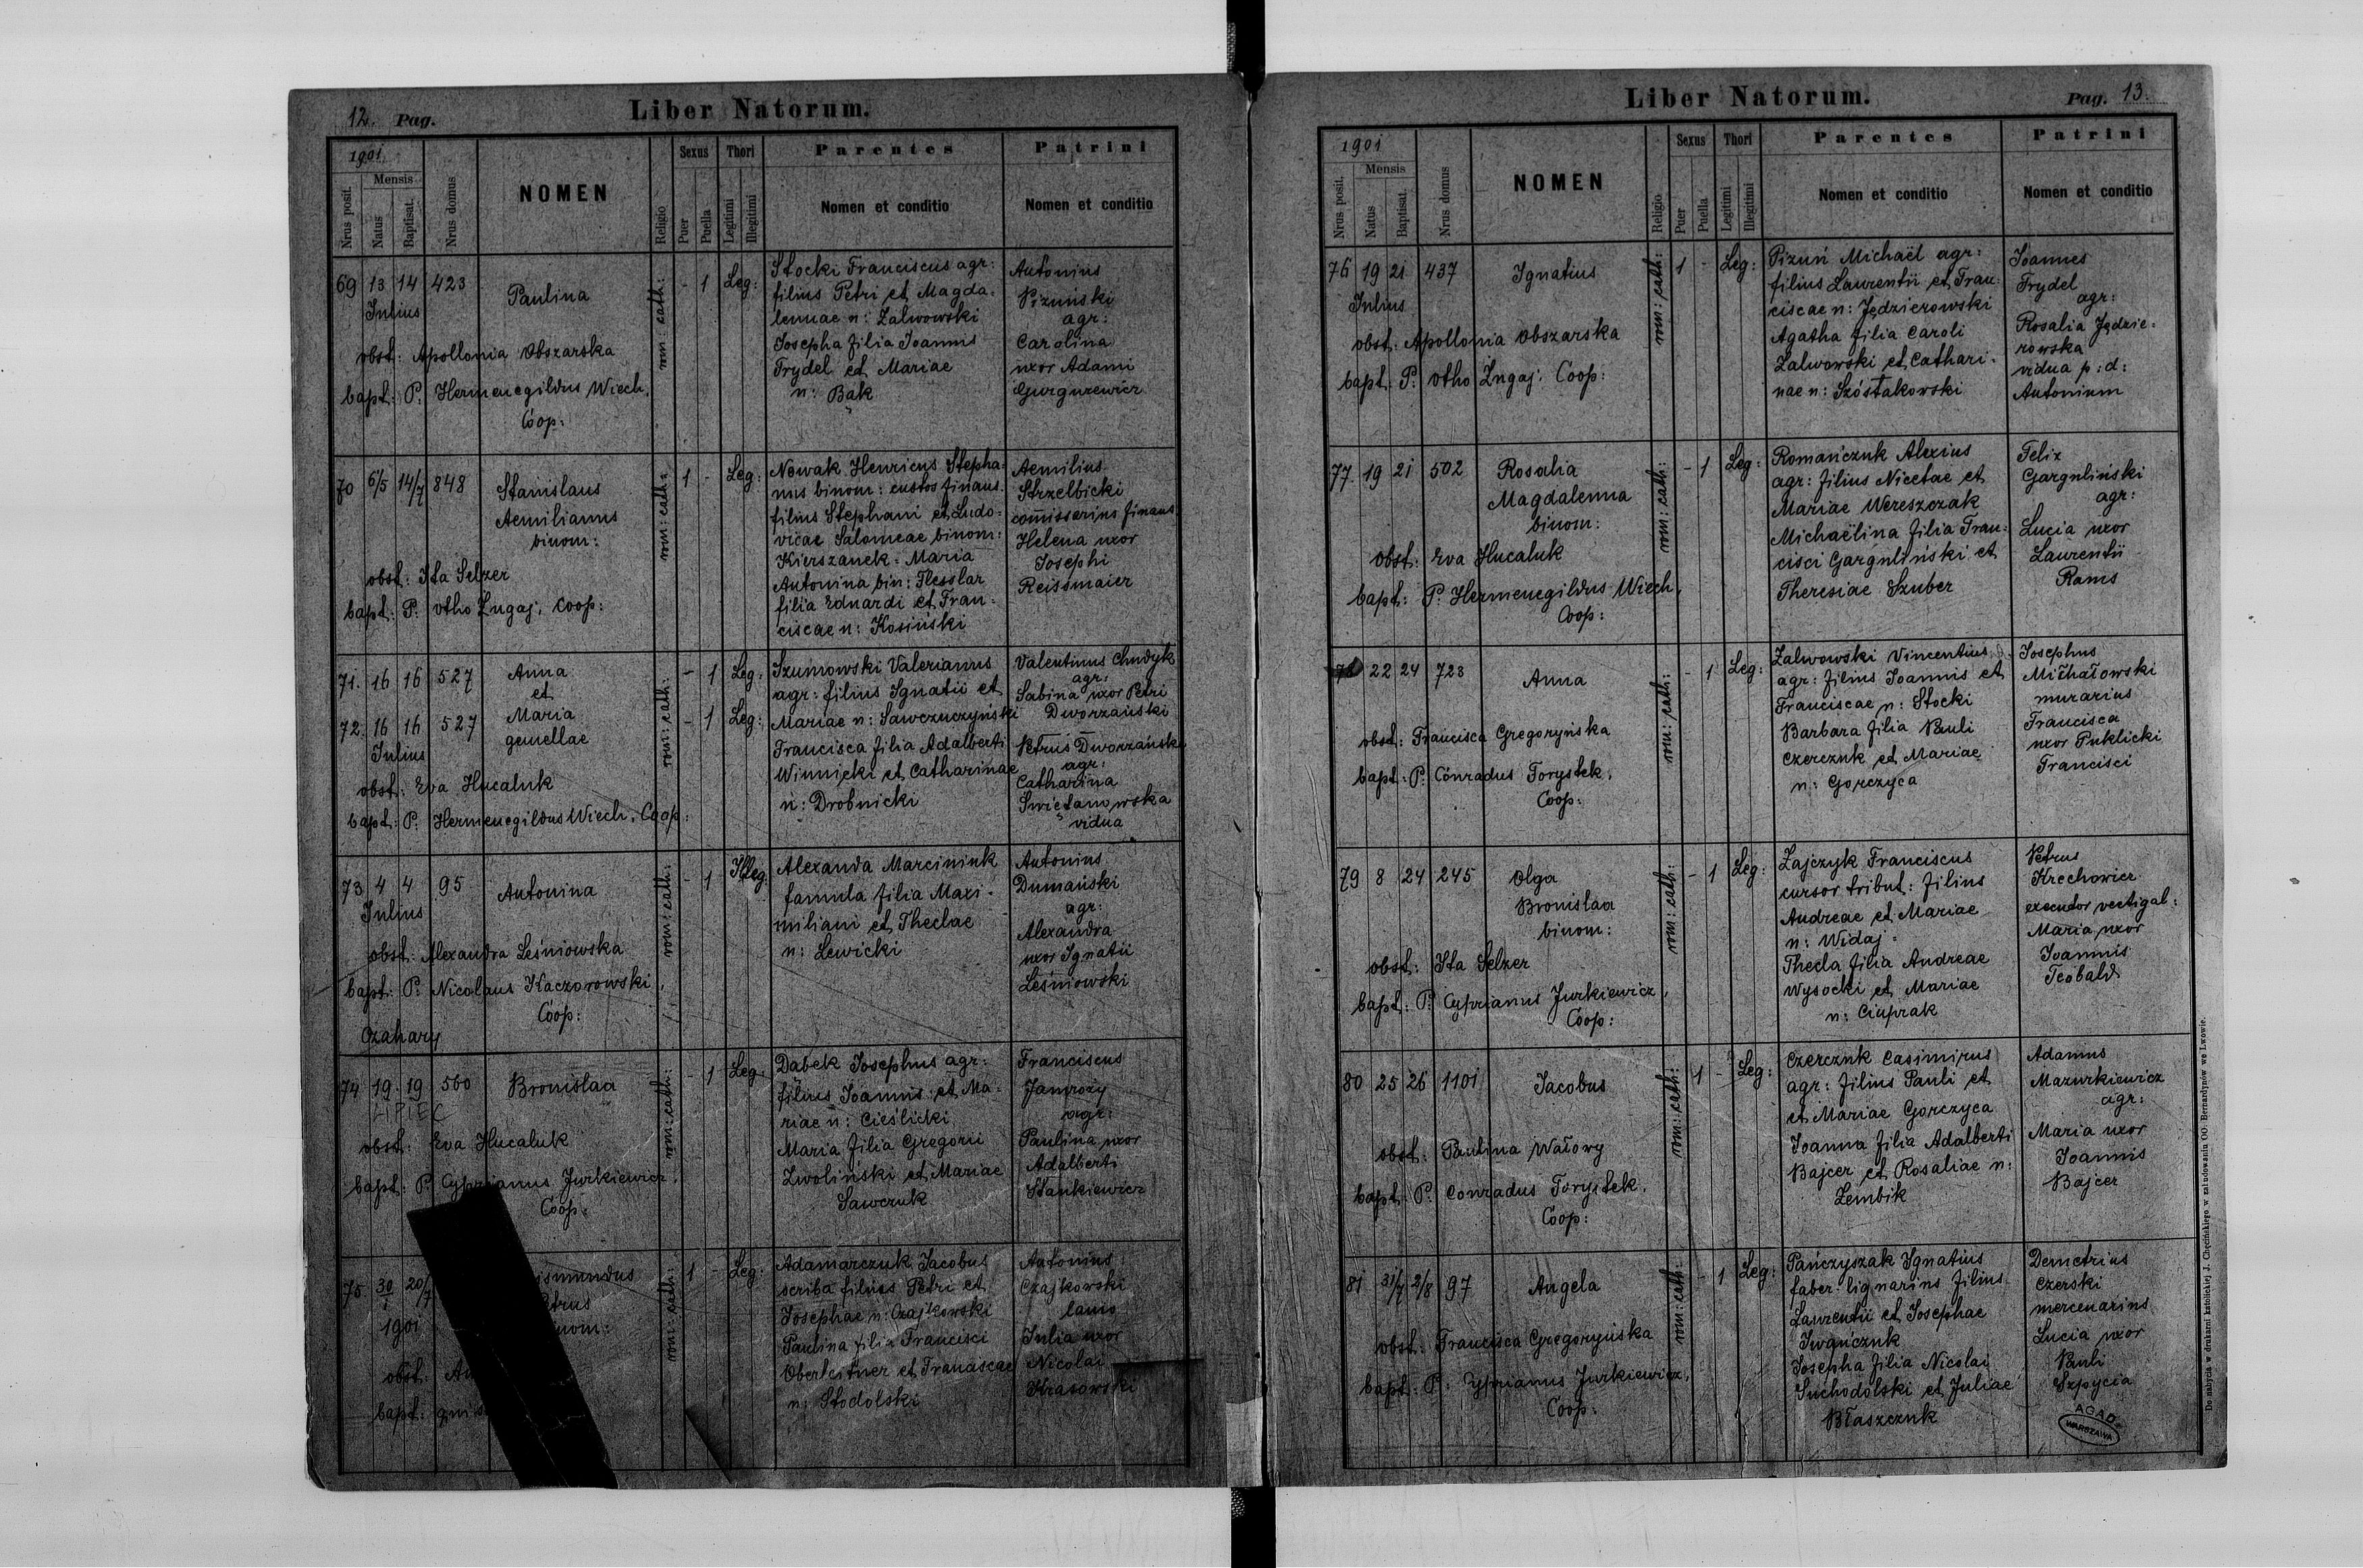 12. Pag.
Liber Natorum.
1901
Nrus posit.
Mensis
Natus
Baptisat.
Nrus domus
NOMEN
Religio
Sexus
Puer
Puella
Thori
Legitimi
Illegitimi
Parentes
Nomen et conditio
Patrini
Nomen et conditio
69 13 14 423
Julius
Paulina
obst: Apollonia Obszarska
bapt: P. Hermenegildus Wiech,
Coop:
rom: cath:
- 1 Leg:
Stocki Franciscus agr:
filius Petri et Magda-
lennae n: Zalwowski
Josepha filia Joannis
Frydel et Mariae
n: Bąk
Antonius
Pizuński
agr:
Carolina
uxor Adami
Gurgurewicz
70 6/5 14/7 848
Stanislaus
Aemilianus
binom:
obst: Ita Selzer
bapt: P. Otho Zugaj, Coop:
rom: cath:
1 - Leg:
Nowak Henricus Stepha-
nus binom: custos finans.
filius Stephani et Ludo-
vicae Salomeae binom:
Kierszanek - Maria
Antonina bin: Flesslar
filia Eduardi et Fran-
ciscae n: Kosiński
Aemilius
Strzelbicki
commissarius finans.
Helena uxor
Josephi
Reissmaier
71. 16 16 527
Anna
et
72. 16 16 527
Maria
gemellae
Julius
obst: Eva Hucaluk
bapt: P. Hermenegildus Wiech, Coop:
rom: cath:
- 1 Leg:
- 1 Leg:
Szumowski Valerianus
agr: filius Ignatii et
Mariae n: Sawczuczyński
Francisca filia Adalberti
Winnicki et Catharinae
n: Drobnicki
Valentinus Chudyk
agr:
Sabina uxor Petri
Dworzański
Petrus Dworzański
agr:
Catharina
Swietanowska
vidua
73 4 4 95
Julius
Antonina
obst: Alexandra Leśniowska
bapt: P. Nicolaus Kaczorowski,
Coop:
Czahary
rom: cath:
- 1 Illeg:
Alexanda Marciniuk
famula filia Maxi-
miliani et Theclae
n: Lewicki
Antonius
Dumański
agr:
Alexandra
uxor Ignatii
Leśniowski
74 19 19 560
LIPIEC
Bronislaa
obst: Eva Hucaluk
bapt: P. Cyprianus Jurkiewicz,
Coop:
rom: cath:
- 1 Leg:
Dąbek Josephus agr:
filius Joannis et Ma-
riae n: Cieślicki
Maria filia Gregorii
Zwoliński et Mariae
Sawczuk
Franciscus
Jamroży
agr:
Paulina uxor
Adalberti
Stankiewicz
75 30/ 20/7
1901
ismundus
trus
nom:
obst:
bapt:
rom: cath:
1 - Leg:
Adamarczuk Jacobus
scriba filius Petri et
Josephae n: Czajkowski
Paulina filia Francisci
Oberleitner et Franciscae
n: Stodolski
Antonius
Czajkowski
lanio
Julia uxor
Nicolai
Krasowski
Liber Natorum.
Pag. 13.
1901
Nrus posit.
Mensis
Natus
Baptisat.
Nrus domus
NOMEN
Religio
Sexus
Puer
Puella
Thori
Legitimi
Illegitimi
Parentes
Nomen et conditio
Patrini
Nomen et conditio
76 19 21 437
Julius
Ignatius
obst: Apollonia Obszarska
bapt: P. Otho Zugaj, Coop:
rom: cath:
1 - Leg:
Pizuń Michaël agr:
filius Laurentii et Fran-
ciscae n: Jędzierowski
Agatha filia Caroli
Zalwowski et Cathari-
nae n: Szóstakowski
Joannes
Frydel
agr:
Rosalia Jędzie-
rowska
vidua p: d:
Antonium
77. 19 21 502
Rosalia
Magdalenna
binom:
obst: Eva Hucaluk
bapt: P. Hermenegildus Wiech,
Coop:
rom: cath:
- 1 Leg:
Romańczuk Alexius
agr: filius Nicetae et
Mariae Wereszczak
Michaëlina filia Fran-
cisci Garguliński et
Theresiae Szuber
Felix
Garguliński
agr:
Lucia uxor
Laurentii
Rams
22 24 723
Anna
obst: Francisca Gregoryńska
bapt: P. Conradus Forystek,
Coop:
rom: cath:
- 1 Leg:
Zalwowski Vincentius
agr: filius Joannis et
Franciscae n: Stocki
Barbara filia Pauli
Czerczuk et Mariae
n: Gorczyca
Josephus
Michałowski
murarius
Francisca
uxor Puklicki
Francisci
79 8 24 245
Olga
Bronislaa
binom:
obst: Ita Selzer
bapt: P. Cyprianus Jurkiewicz,
Coop:
rom: cath:
- 1 Leg:
Zajczyk Franciscus
cursor tribut: filius
Andreae et Mariae
n: Widaj -
Thecla filia Andreae
Wysocki et Mariae
n: Ciuprak
Petrus
Krechowicz
executor vectigal:
Maria uxor
Joannis
Teobald
80 25 26 1101
Jacobus
obst: Paulina Wałowy
bapt: P. Conradus Forystek,
Coop:
rom: cath:
1 - Leg:
Czerczuk Casimirus
agr: filius Pauli et
et Mariae Gorczyca
Joanna filia Adalberti
Bajcer et Rosaliae n:
Zembik
Adamus
Mazurkiewicz
agr:
Maria uxor
Joannis
Bajcer
81 31/7 2/8 97
Angela
obst: Francisca Gregoryńska
bapt: P. Cyprianus Jurkiewicz,
Coop:
rom: cath:
- 1 Leg:
Pańczyszak Ignatius
faber lignarius filius
Laurentii et Josephae
Iwańczuk
Josepha filia Nicolai
Suchodolski et Juliae
Błaszczuk
Demetrius
Czerski
mercenarius
Lucia uxor
Pauli
Szpycia
AGAD
WARSZAWA
Do nabycia w drukarni katolickiej J. Chęcińskiego w zabudowaniu OO. Bernardynów we Lwowie.